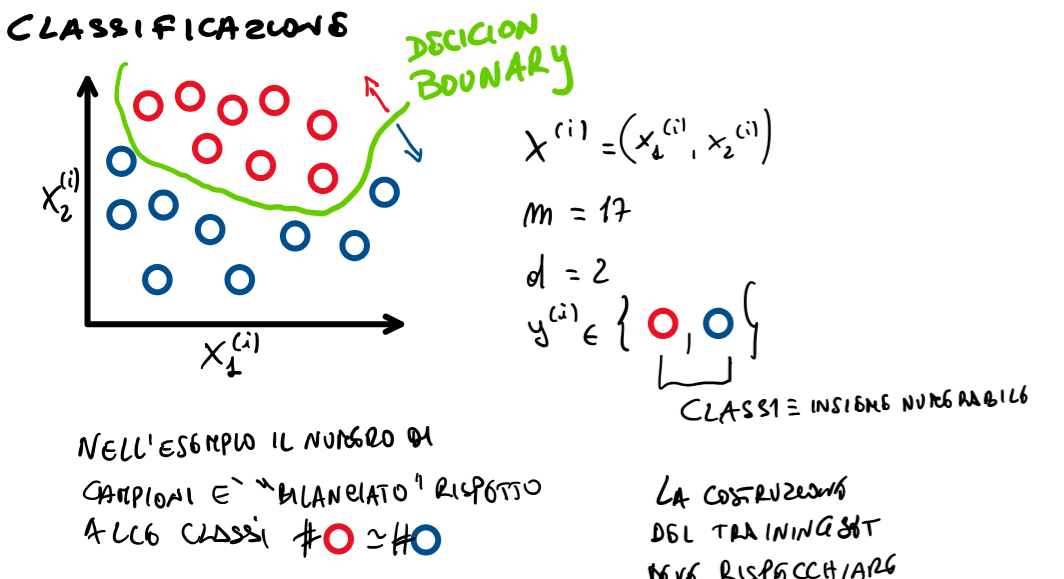 CLASSIFICAZIONE
DECICION
BOUNARY
X₂⁽ⁱ⁾
X₁⁽ⁱ⁾
X⁽ⁱ⁾ = (x₁⁽ⁱ⁾, x₂⁽ⁱ⁾)
m = 17
d = 2
y⁽ⁱ⁾ ∈ { , }
CLASSI ≡ INSIEME NUMERABILE
NELL'ESEMPIO IL NUMERO DI
CAMPIONI E` "BILANCIATO" RISPETTO
ALLE CLASSI # ≃ #
LA COSTRUZIONE
DEL TRAINING SET
DEVE RISPECCHIARE